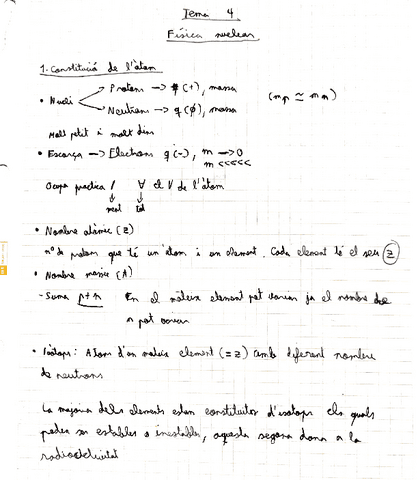 Tema 4
Física nuclear
1. Constitució de l'àtom
• Nucli
Protons → q (+), massa
Neutrons → q (ø), massa
(mp ≃ mn)
Molt petit i molt dens
• Escorça → Electrons q (-), m → 0
m <<<<<
Ocupa practica / ∀ el V de l'àtom
tot
• Nombre atòmic (Z)
nº de protons que té un àtom i un element. Cada element té el seu Z
• Nombre màssic (A)
- Suma p+n En el mateix element pot variar ja el nombre de
n pot variar
• Isòtops: Atoms d'un mateix element (= Z) amb diferent nombre
de neutrons
La majoria dels elements estan constituitos d'isotops els quals
poden ser estables o inestables, aquesta segona dona a la
radioactivitat